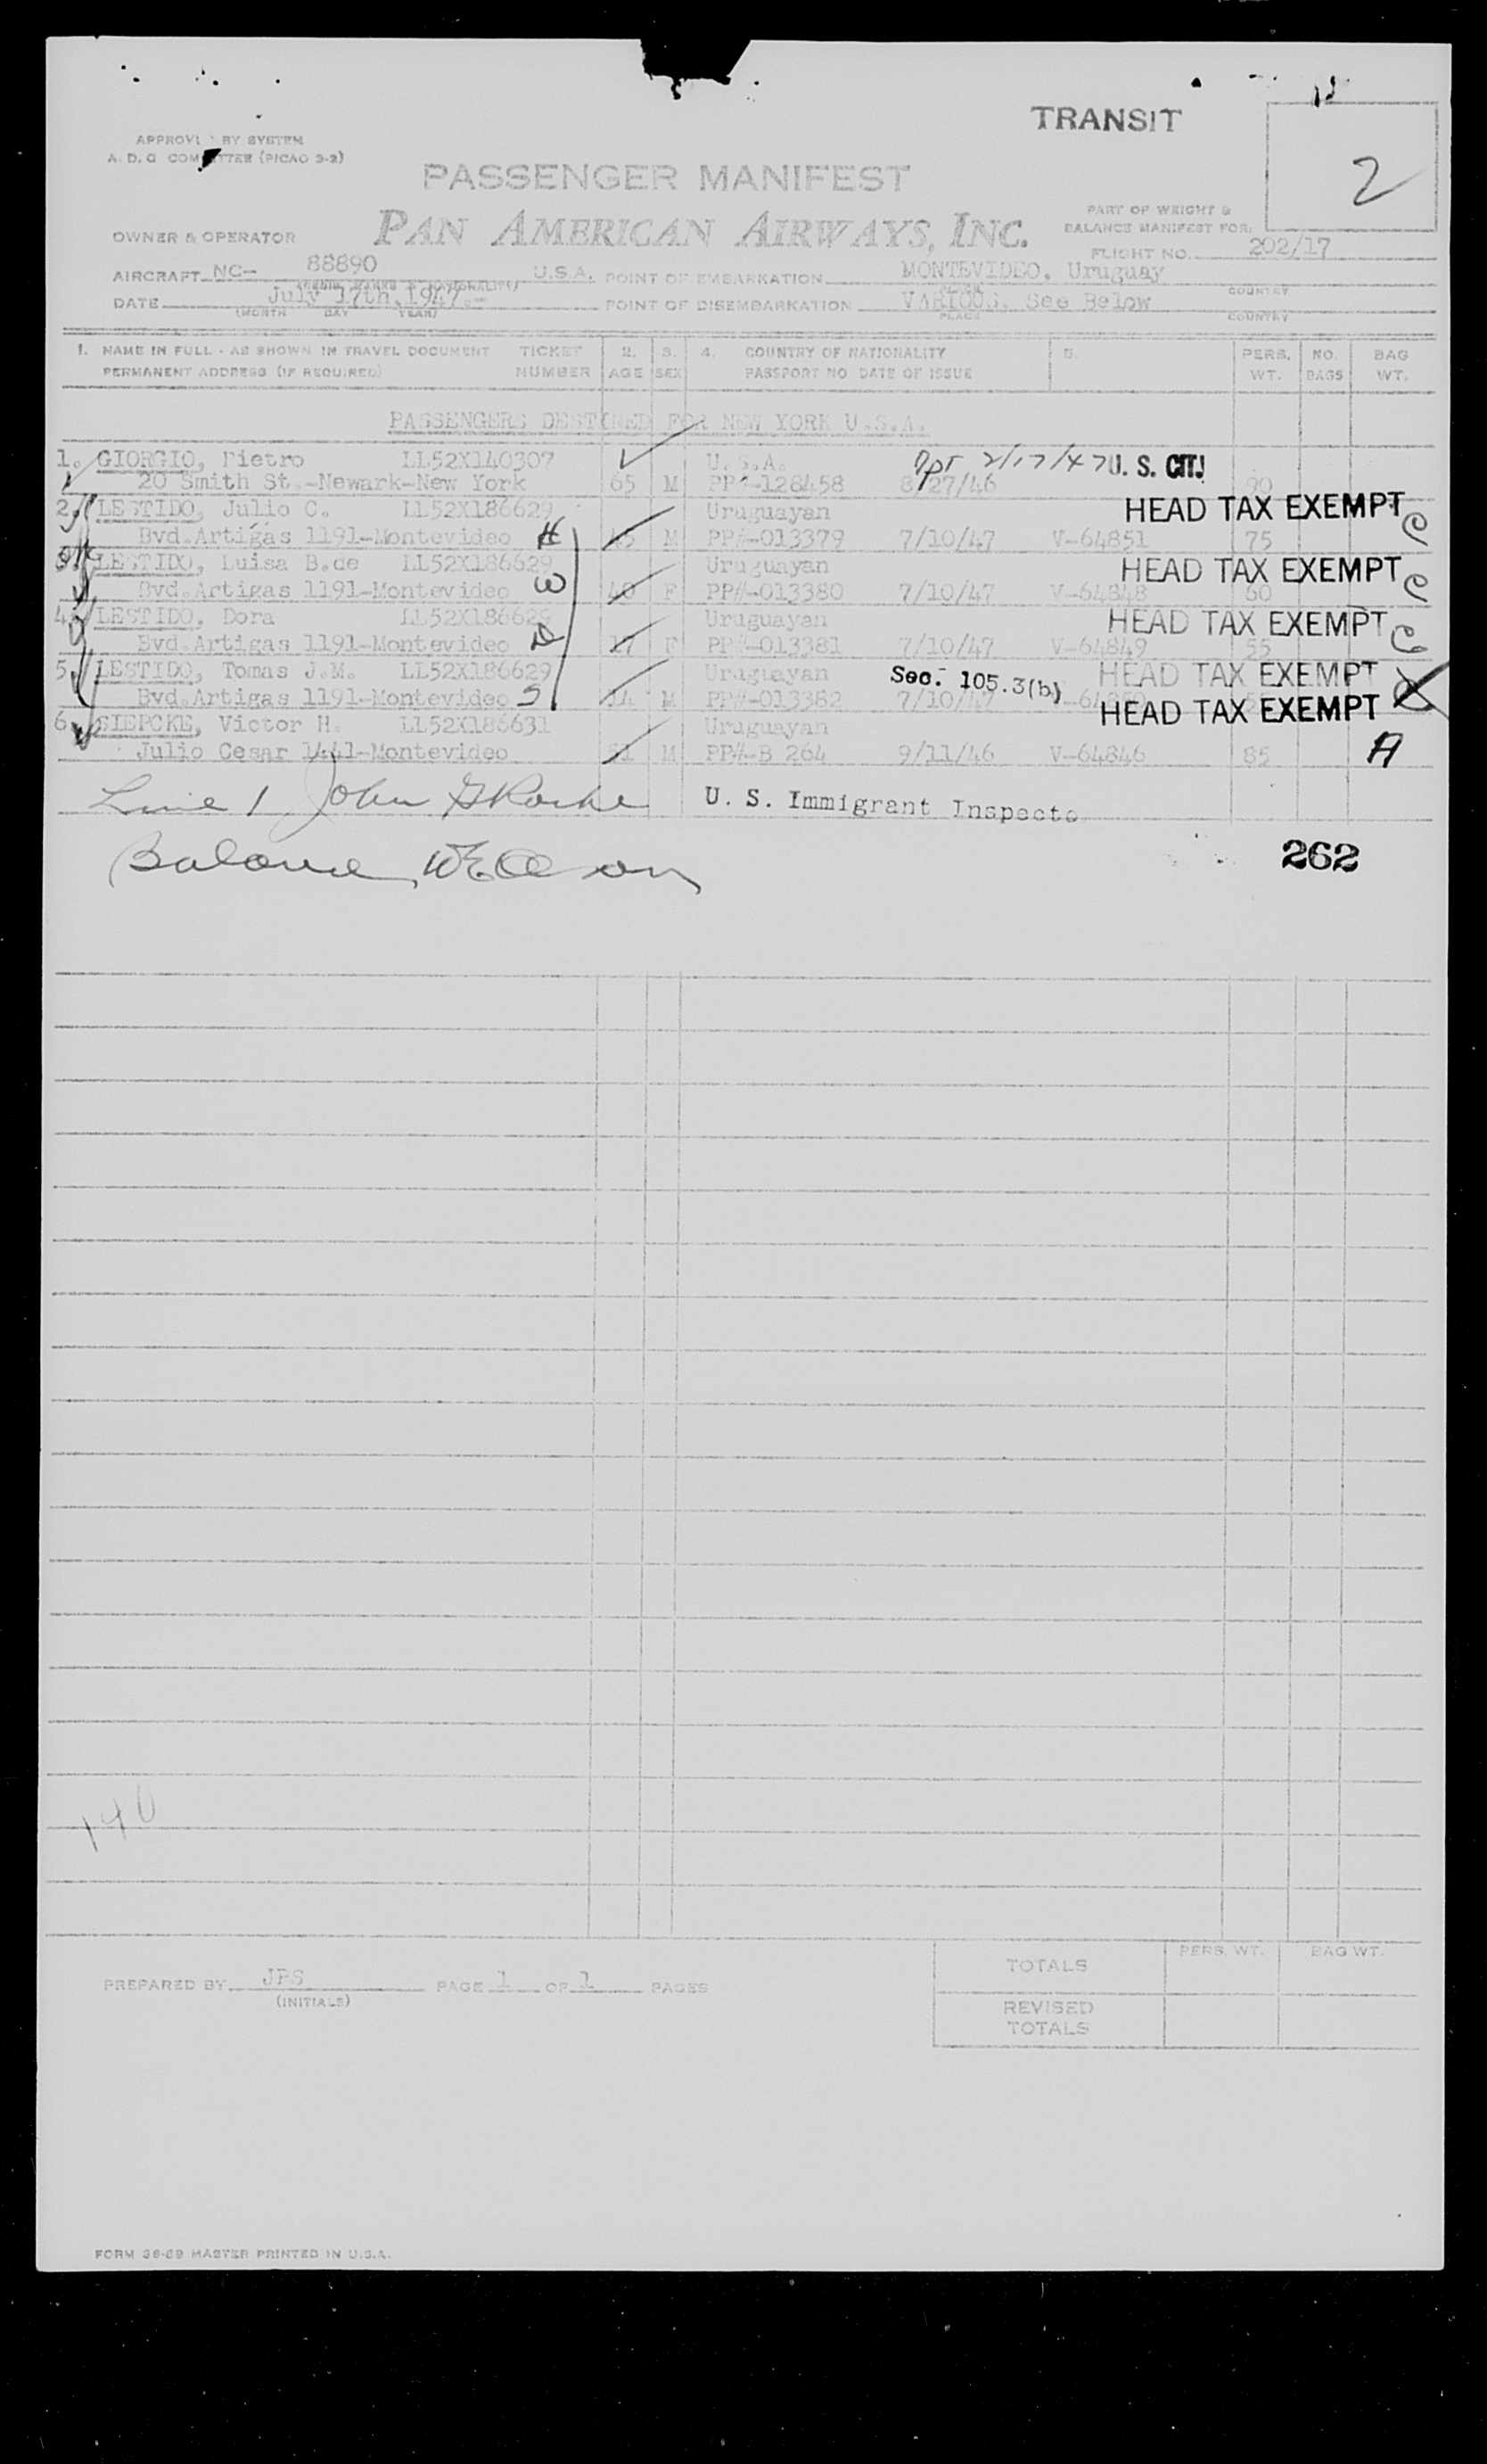 TRANSIT
A. D. C. COMMITTEE (PICAO 3-2)
2
PASSENGER MANIFEST
PAN AMERICAN AIRWAYS, INC.
PART OF WEIGHT &
BALANCE MANIFEST FOR:
OWNER & OPERATOR
FLIGHT NO. 202/17
AIRCRAFT NC- 88890 U.S.A. POINT OF EMBARKATION MONTEVIDEO, Uruguay
PLACE COUNTRY
DATE July 17th, 1947.- POINT OF DISEMBARKATION VARIOUS. See Below
(MONTH DAY YEAR) PLACE COUNTRY
1. NAME IN FULL - AS SHOWN IN TRAVEL DOCUMENT TICKET 2. 3. 4. COUNTRY OF NATIONALITY 5. PERS. NO. BAG
PERMANENT ADDRESS (IF REQUIRED) NUMBER AGE SEX PASSPORT NO DATE OF ISSUE WT. BAGS WT.
PASSENGERS DESTINED FOR NEW YORK U.S.A.
1. GIORGIO, Pietro LL52X140307 U.S.A. Dpt 2/17/47 U. S. CIT.
20 Smith St.-Newark-New York 65 M PP#-128458 8/27/46
2. LESTIDO, Julio C. LL52X186629 Uruguayan HEAD TAX EXEMPT C
Bvd.Artigas 1191-Montevideo H M PP#-013379 7/10/47 V-64851 75
3. LESTIDO, Luisa B.de LL52X186629 Uruguayan HEAD TAX EXEMPT C
Bvd.Artigas 1191-Montevideo W 40 F PP#-013380 7/10/47 V-64848 60
4. LESTIDO, Dora LL52X186629 Uruguayan HEAD TAX EXEMPT C
Bvd.Artigas 1191-Montevideo D 17 F PP#-013381 7/10/47 V-64849 55
5. LESTIDO, Tomas J.M. LL52X186629 Uruguayan Sec. 105.3(b) HEAD TAX EXEMPT
Bvd.Artigas 1191-Montevideo S 14 M PP#-013382 7/10/47 HEAD TAX EXEMPT
6. SIEPCKE, Victor H. LL52X186631 Uruguayan
Julio Cesar 1441-Montevideo 51 M PP#-B 264 9/11/46 V-64846 85 A
Line 1 John U. S. Immigrant Inspecto
Balance
262
140
PREPARED BY JPS PAGE 1 OF 1 PAGES
(INITIALS)
PERS. WT. BAG WT.
TOTALS
REVISED
TOTALS
FORM 36-69 MASTER PRINTED IN U.S.A.